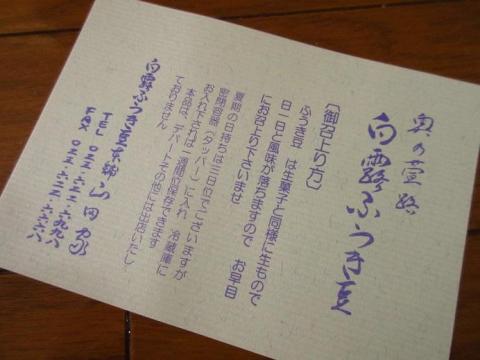 奥の富貴
白露ふうき豆
〔御召上り方〕
ふうき豆は生菓子と同様に生もので
日一日と風味が落ちますので お早目
にお召上り下さいませ
夏期の日持ちは三日位でございますが
密閉容器（タッパー）に入れ 冷蔵庫に
お入れ下されば一週間位保存できます
本品は、デパートその他には出店いたし
ておりません
白露ふうき豆本舗 山田家